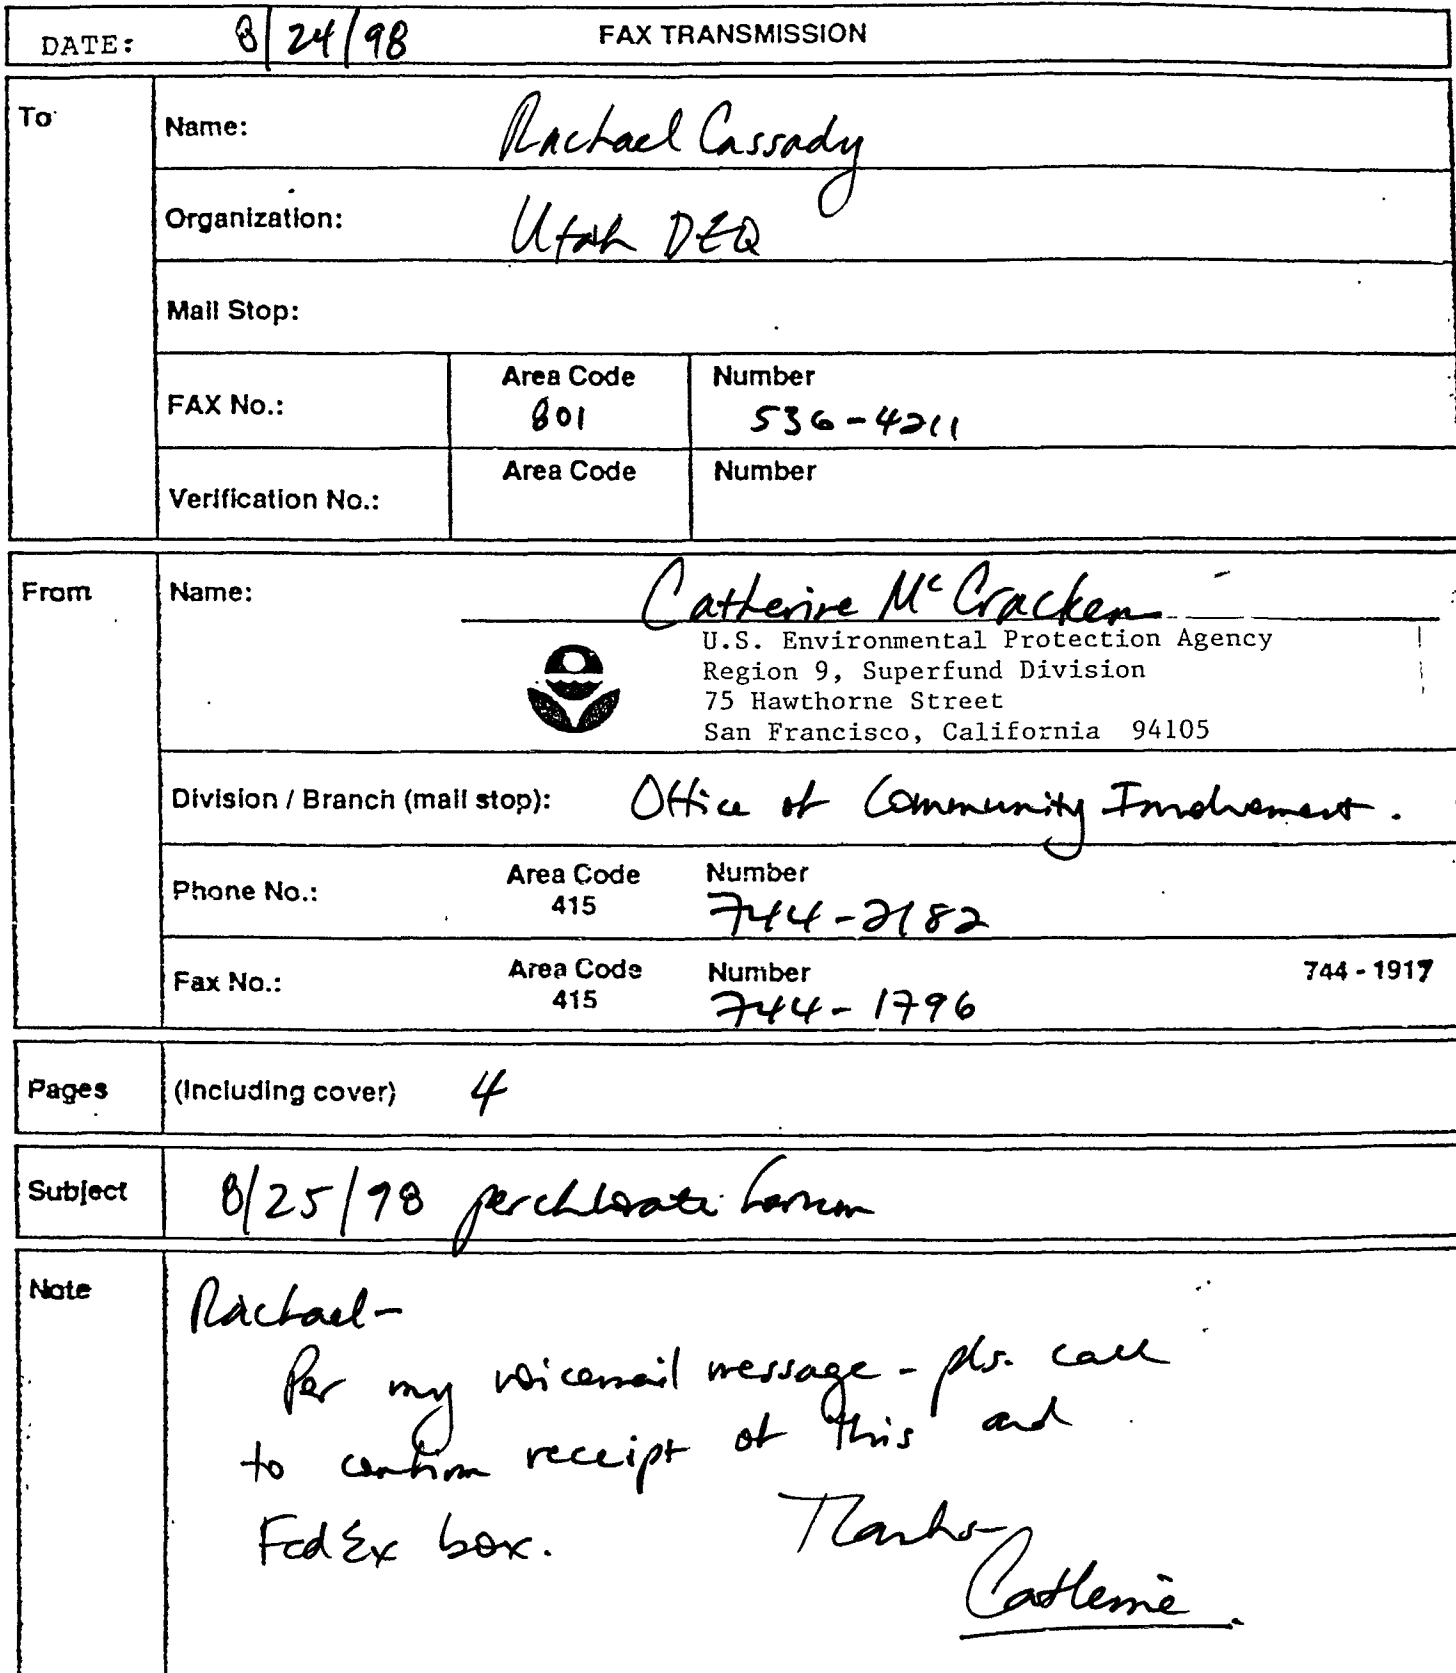 DATE: 8/24/98 FAX TRANSMISSION
To
Name: Rachael Cassady
Organization: Utah DEQ
Mail Stop:
FAX No.: Area Code 801 Number 536-4211
Verification No.: Area Code Number
From
Name: Catherine McCracken
U.S. Environmental Protection Agency
Region 9, Superfund Division
75 Hawthorne Street
San Francisco, California 94105
Division / Branch (mail stop): Office of Community Involvement.
Phone No.: Area Code 415 Number 744-2182
Fax No.: Area Code 415 Number 744-1796 744-1917
Pages (Including cover) 4
Subject 8/25/98 perchlorate forum
Note
Rachael-
Per my voicemail message - pls. call
to confirm receipt of this and
FedEx box. Thanks-
Catherine.